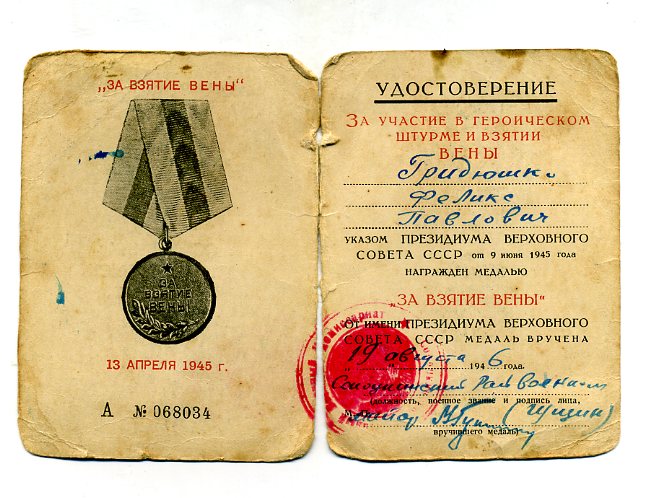 „ЗА ВЗЯТИЕ ВЕНЫ“
ЗА
ВЗЯТИЕ
ВЕНЫ
13 АПРЕЛЯ 1945 г.
А № 068034
УДОСТОВЕРЕНИЕ
ЗА УЧАСТИЕ В ГЕРОИЧЕСКОМ
ШТУРМЕ И ВЗЯТИИ
ВЕНЫ
Гридюшко
Феликс
Павлович
УКАЗОМ ПРЕЗИДИУМА ВЕРХОВНОГО
СОВЕТА СССР от 9 июня 1945 года
НАГРАЖДЕН МЕДАЛЬЮ
„ЗА ВЗЯТИЕ ВЕНЫ“
ОТ ИМЕНИ ПРЕЗИДИУМА ВЕРХОВНОГО
СОВЕТА СССР МЕДАЛЬ ВРУЧЕНА
19 августа 1946 года.
(должность, военное звание и подпись лица,
майор (Гущин)
вручившего медаль)